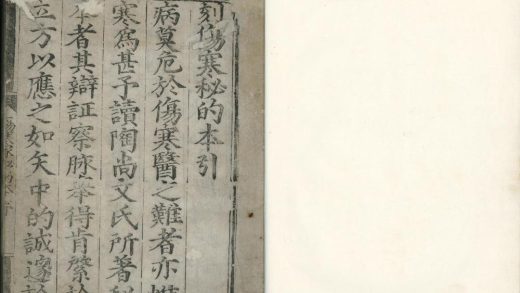 刻傷寒秘的本引
病莫危於傷寒醫之難者亦惟
寒為甚予讀陶尚文氏所著秘
本者其辯証察脉率得肯綮於
立方以應之如矢中的誠邃於